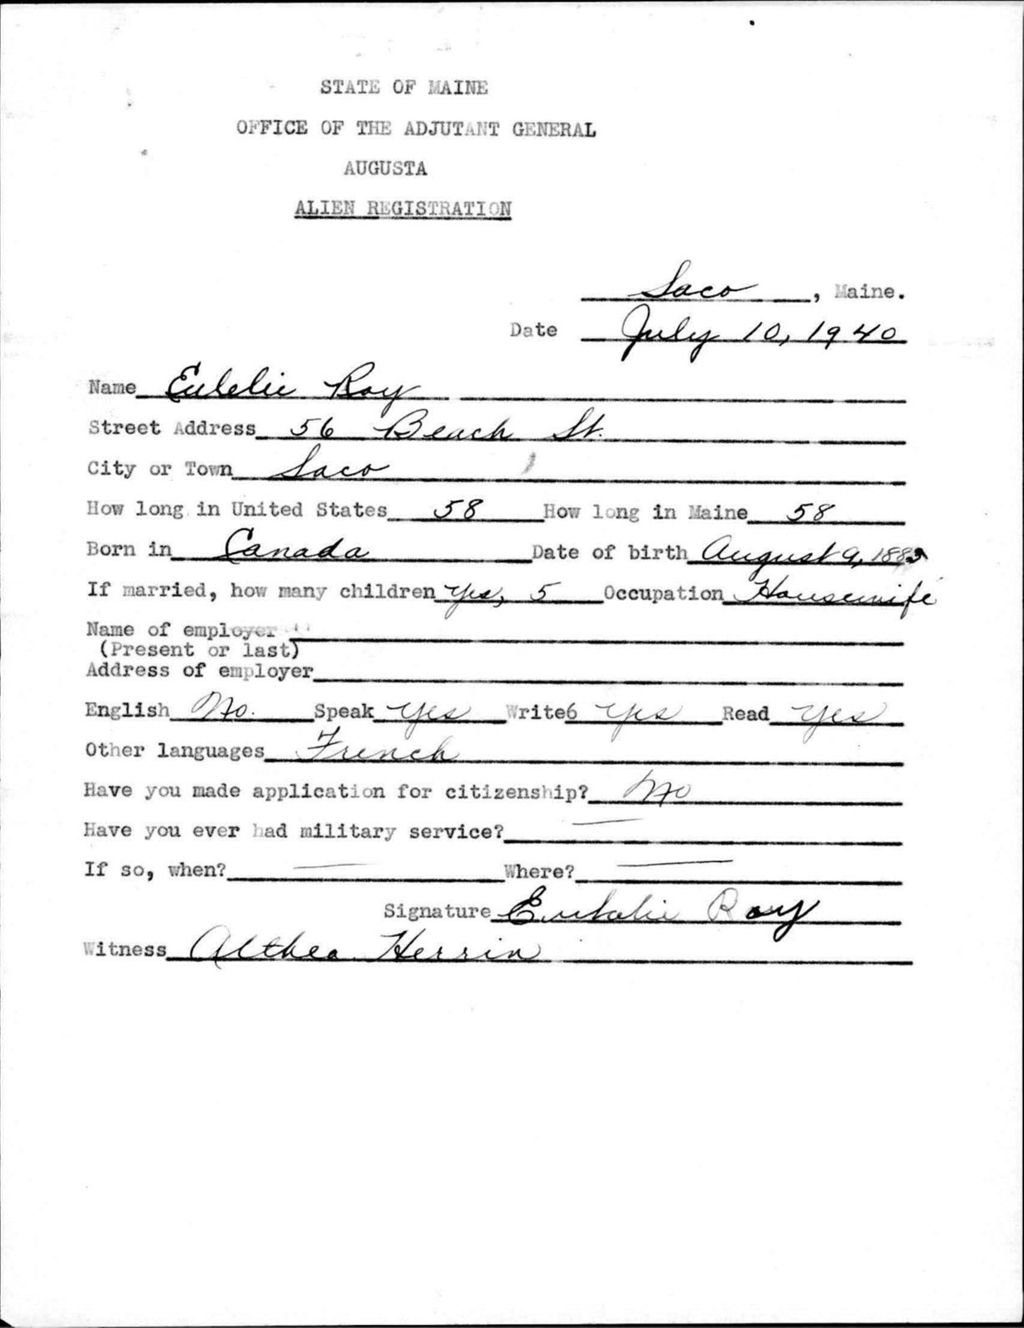 STATE OF MAINE
OFFICE OF THE ADJUTANT GENERAL
AUGUSTA
ALIEN REGISTRATION
Saco, Maine.
Date July 10, 1940
Name Eulelie Roy
Street Address 56 Beach St.
City or Town Saco
How long in United States 58 How long in Maine 58
Born in Canada Date of birth August 9,
If married, how many children Yes, 5 Occupation Housewife
Name of employer
(Present or last)
Address of employer
English No. Speak Yes Write6 Yes Read Yes
Other languages French
Have you made application for citizenship? No
Have you ever had military service? —
If so, when? — Where? —
Signature Roy
Witness Althea Herrin